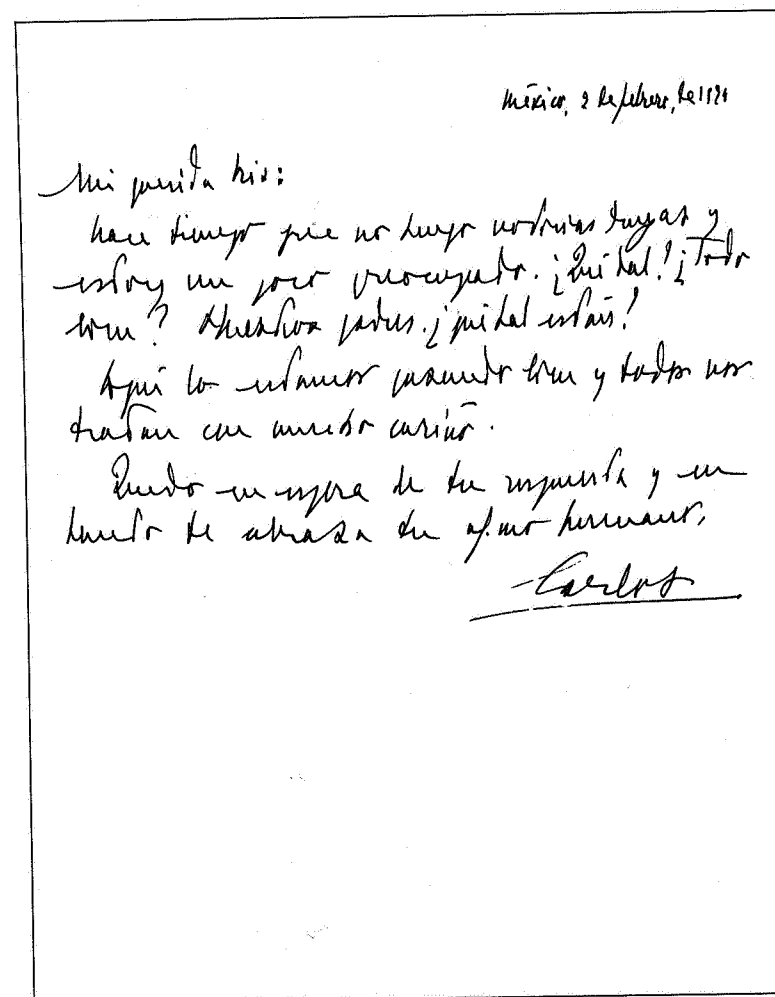 México, 2 de febrero, de
Mi querida
hace tiempo que no tengo noticias tuyas y
estoy un poco preocupado. ¿Qué tal? ¿Todo
bien? Nuestros padres ¿qué tal están?
Aquí lo estamos pasando bien y todos nos
tratan con mucho cariño.
Quedo en espera de tu respuesta y un
de abraza tu afmo hermano,
Carlos